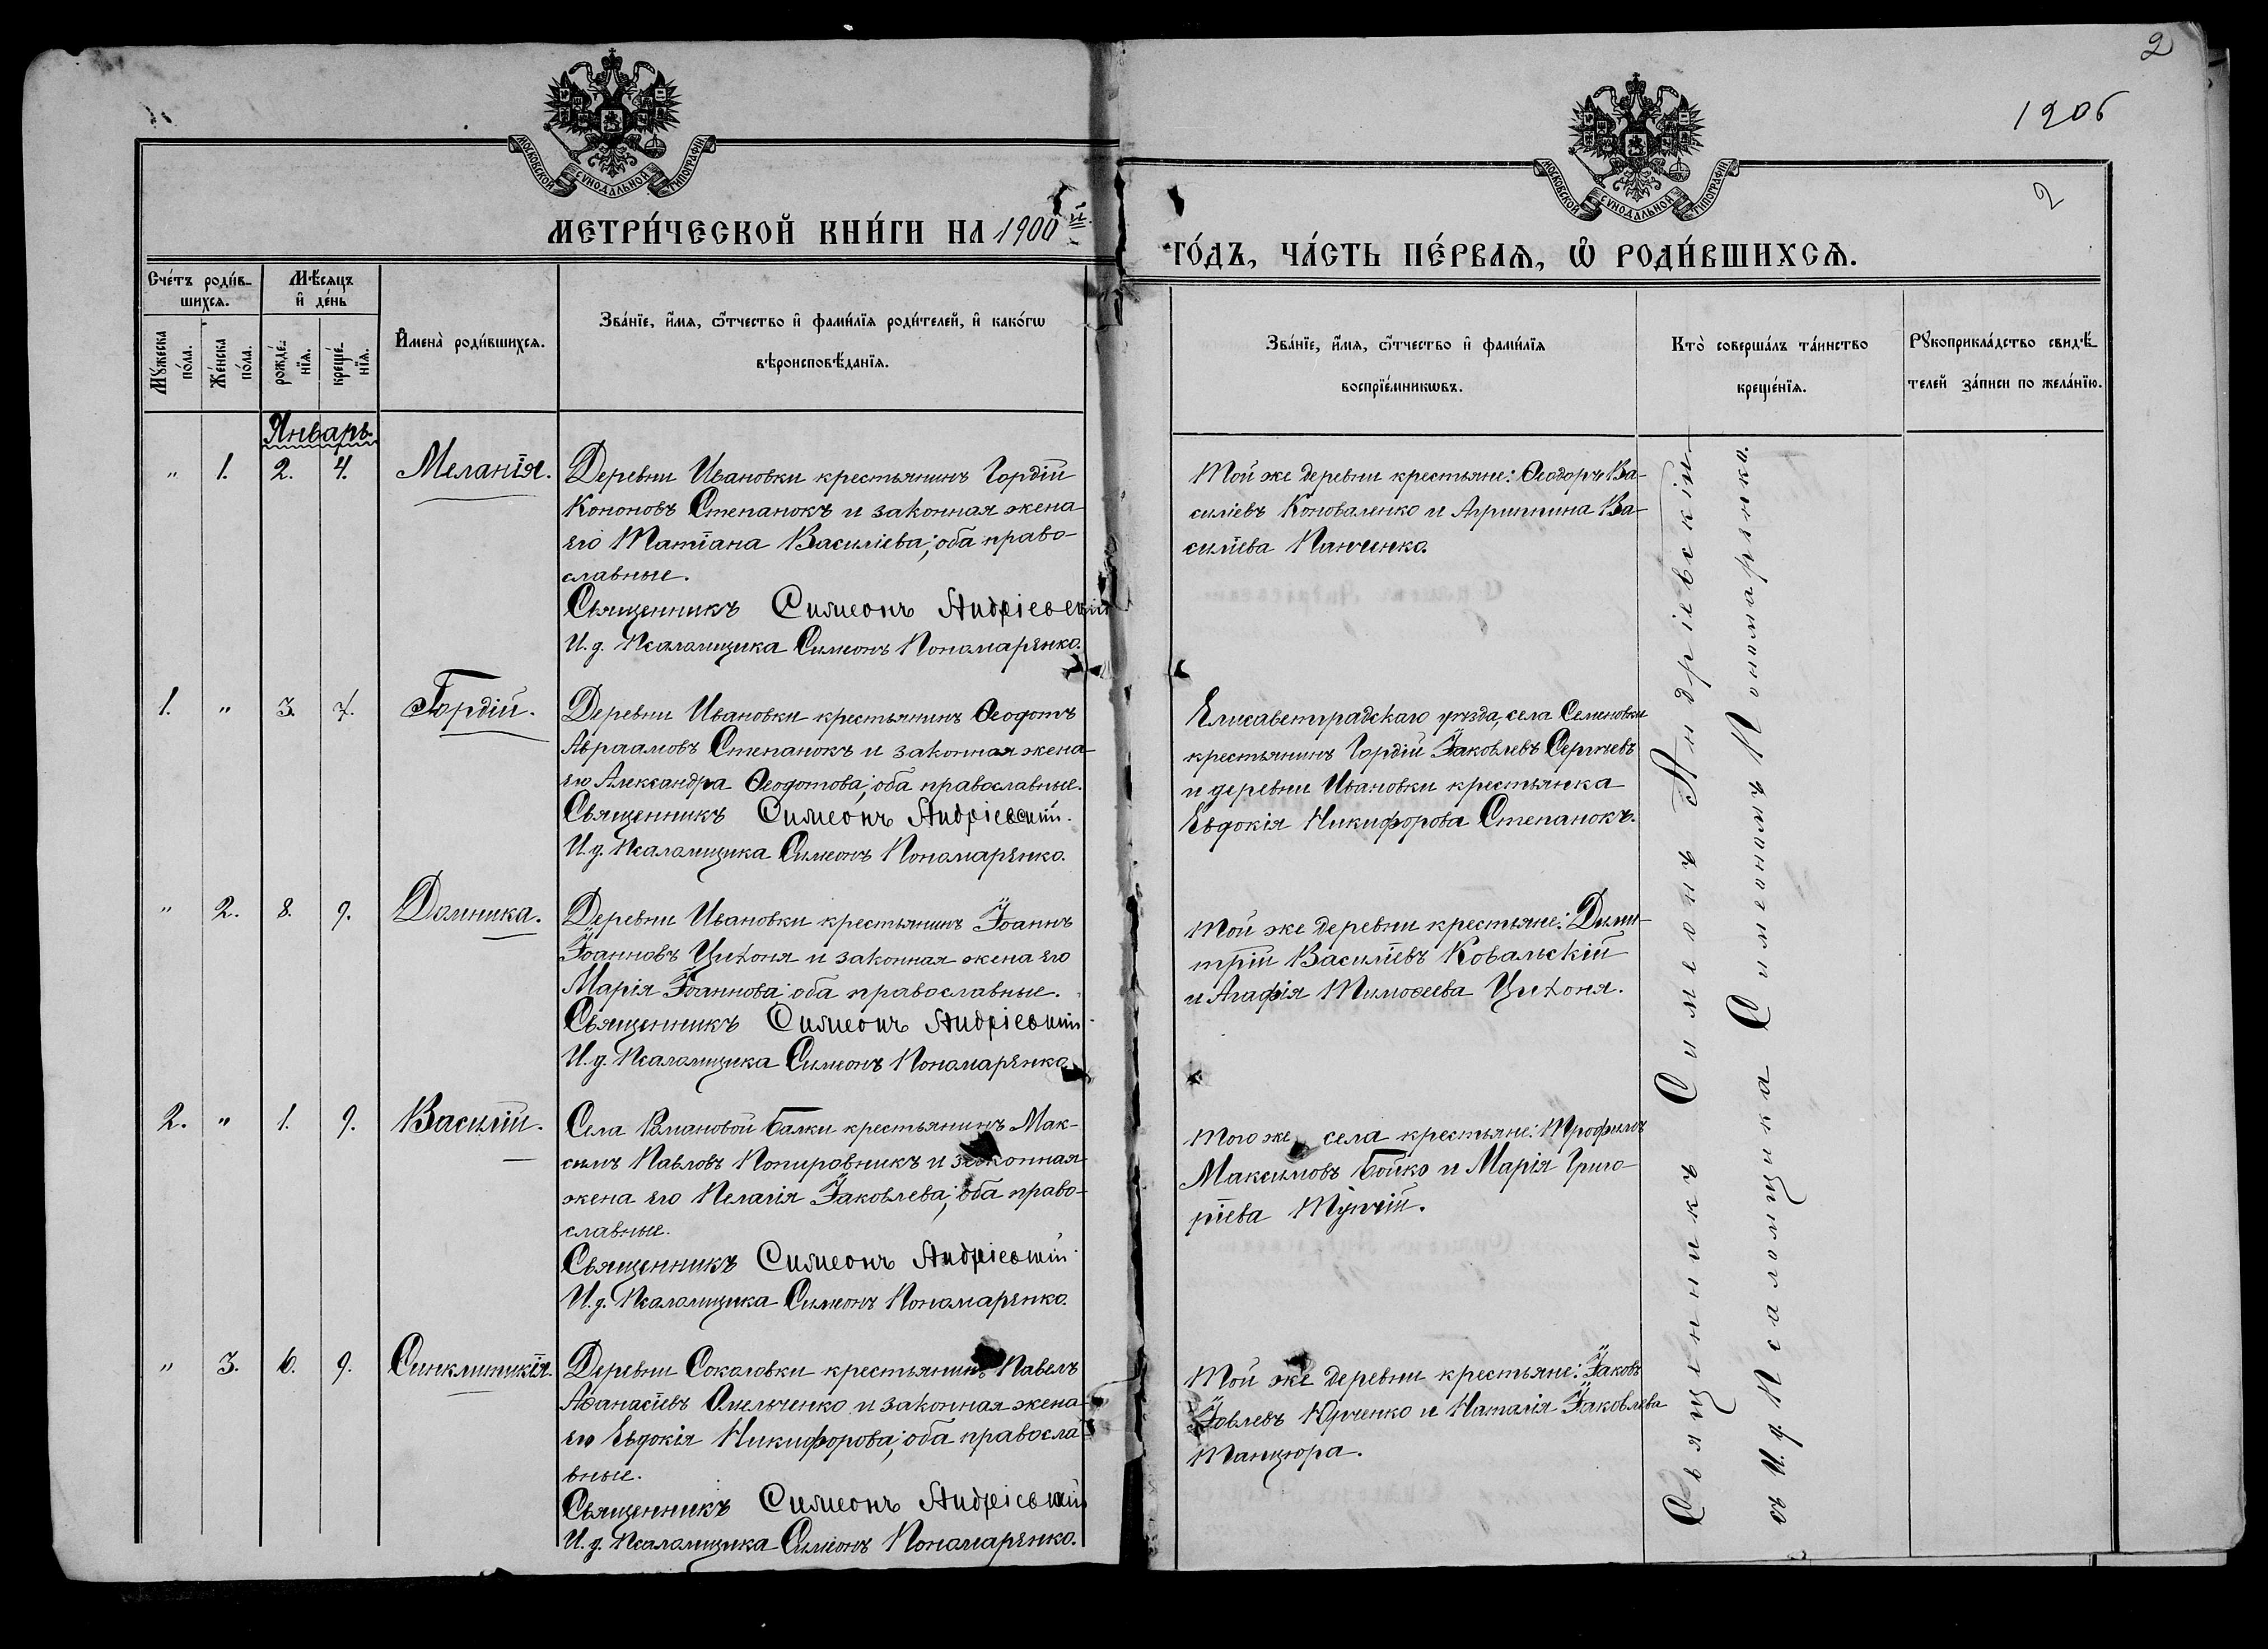 2
1906
2
МОСКОВСКОЙ СѴНОДАЛЬНОЙ ТИПОГРАФІИ
МОСКОВСКОЙ СѴНОДАЛЬНОЙ ТИПОГРАФІИ
МЕТРИ́ЧЕСКОЙ КНИ́ГИ НА 1900й
ГО́ДЪ, ЧА́СТЬ ПЕ́РВАѦ, Ѡ҆ РОДИ́ВШИХСѦ.
Сче́тъ роди́в-
шихсѧ.
Мѣ́сѧцъ
и҆ де́нь
Мꙋ́жеска
по́ла.
Же́нска
по́ла.
рожде́-
нїѧ.
креще́-
нїѧ.
И҆мена̀ роди́вшихсѧ.
Зва́нїе, и҆́мѧ, ѻ҆́тчество и҆ фами́лїѧ роди́телей, и҆ како́гѡ
вѣроисповѣ́данїѧ.
Зва́нїе, и҆́мѧ, ѻ҆́тчество и҆ фами́лїѧ
воспрїе́мникѡвъ.
Кто̀ соверша́лъ та́инство
креще́нїѧ.
Рꙋкоприкла́дство свидѣ́-
телей за́писи по жела́нїю.
Январь.
" 1. 2. 4. Меланія.
Деревни Ивановки крестьянинъ Гордій
Кононовъ Степанокъ и законная жена
его Татіана Василіева; оба право-
славные.
Священникъ Симеонъ Андріевскій
И. д. Псаломщика Симеонъ Пономаренко.
Той же деревни крестьяне: Ѳеодоръ Ва-
силіевъ Коноваленко и Агриппина Ва-
силіева Панченко.
1. " 3. 7. Гордій.
Деревни Ивановки крестьянинъ Ѳеодотъ
Авраамовъ Степанокъ и законная жена
его Александра Ѳеодотова; оба православные.
Священникъ Симеонъ Андріевскій.
И. д. Псаломщика Симеонъ Пономаренко.
Елисаветградскаго уѣзда, села Семеновки
крестьянинъ Гордій Іаковлевъ Сергѣевъ
и деревни Ивановки крестьянка
Евдокія Никифорова Степанокъ.
" 2. 8. 9. Домника.
Деревни Ивановки крестьянинъ Іоаннъ
Іоанновъ Цихоня и законная жена его
Марія Іоаннова; оба православные.
Священникъ Симеонъ Андріевскій
И. д. Псаломщика Симеонъ Пономаренко.
Той же деревни крестьяне: Дими-
трій Василіевъ Ковальскій
и Агафія Тимоѳеева Цихоня.
2. " 1. 9. Василій.
Села Романовой Балки крестьянинъ Мак-
симъ Павловъ Попировникъ и законная
жена его Пелагія Іаковлева; оба право-
славные.
Священникъ Симеонъ Андріевскій
И. д. Псаломщика Симеонъ Пономаренко.
Того же села крестьяне: Трофимъ
Максимовъ Бойко и Марія Григо-
ріева
" 3. 6. 9. Синклитикія.
Деревни Соколовки крестьянинъ Павелъ
Аѳанасіевъ Омельченко и законная жена
его Евдокія Никифорова; оба правосла
вные.
Священникъ Симеонъ Андріевскій
И. д. Псаломщика Симеонъ Пономаренко.
Той же деревни крестьяне: Іаковъ
Іовлевъ Юрченко и Наталія Іаковлева
Танцюра.
Священникъ Симеонъ Андріевскій
съ И. д. Псаломщика Симеономъ Пономаренко.